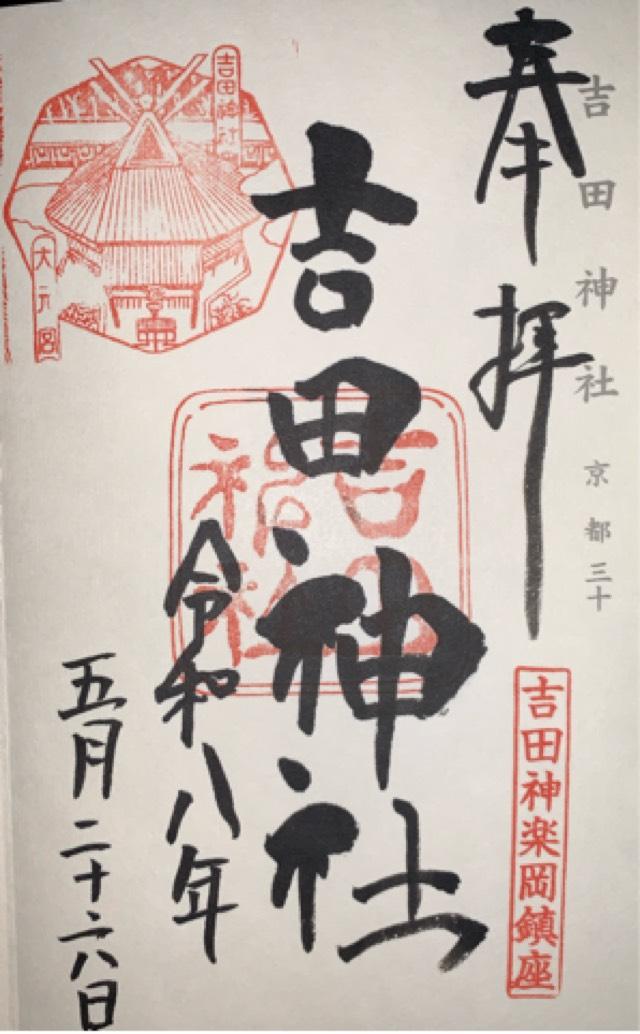 吉田神社 京都三十
奉拝
吉田神楽岡鎮座
吉田神社
吉田
神社
令和八年
五月二十六日
吉田神社
大元宮